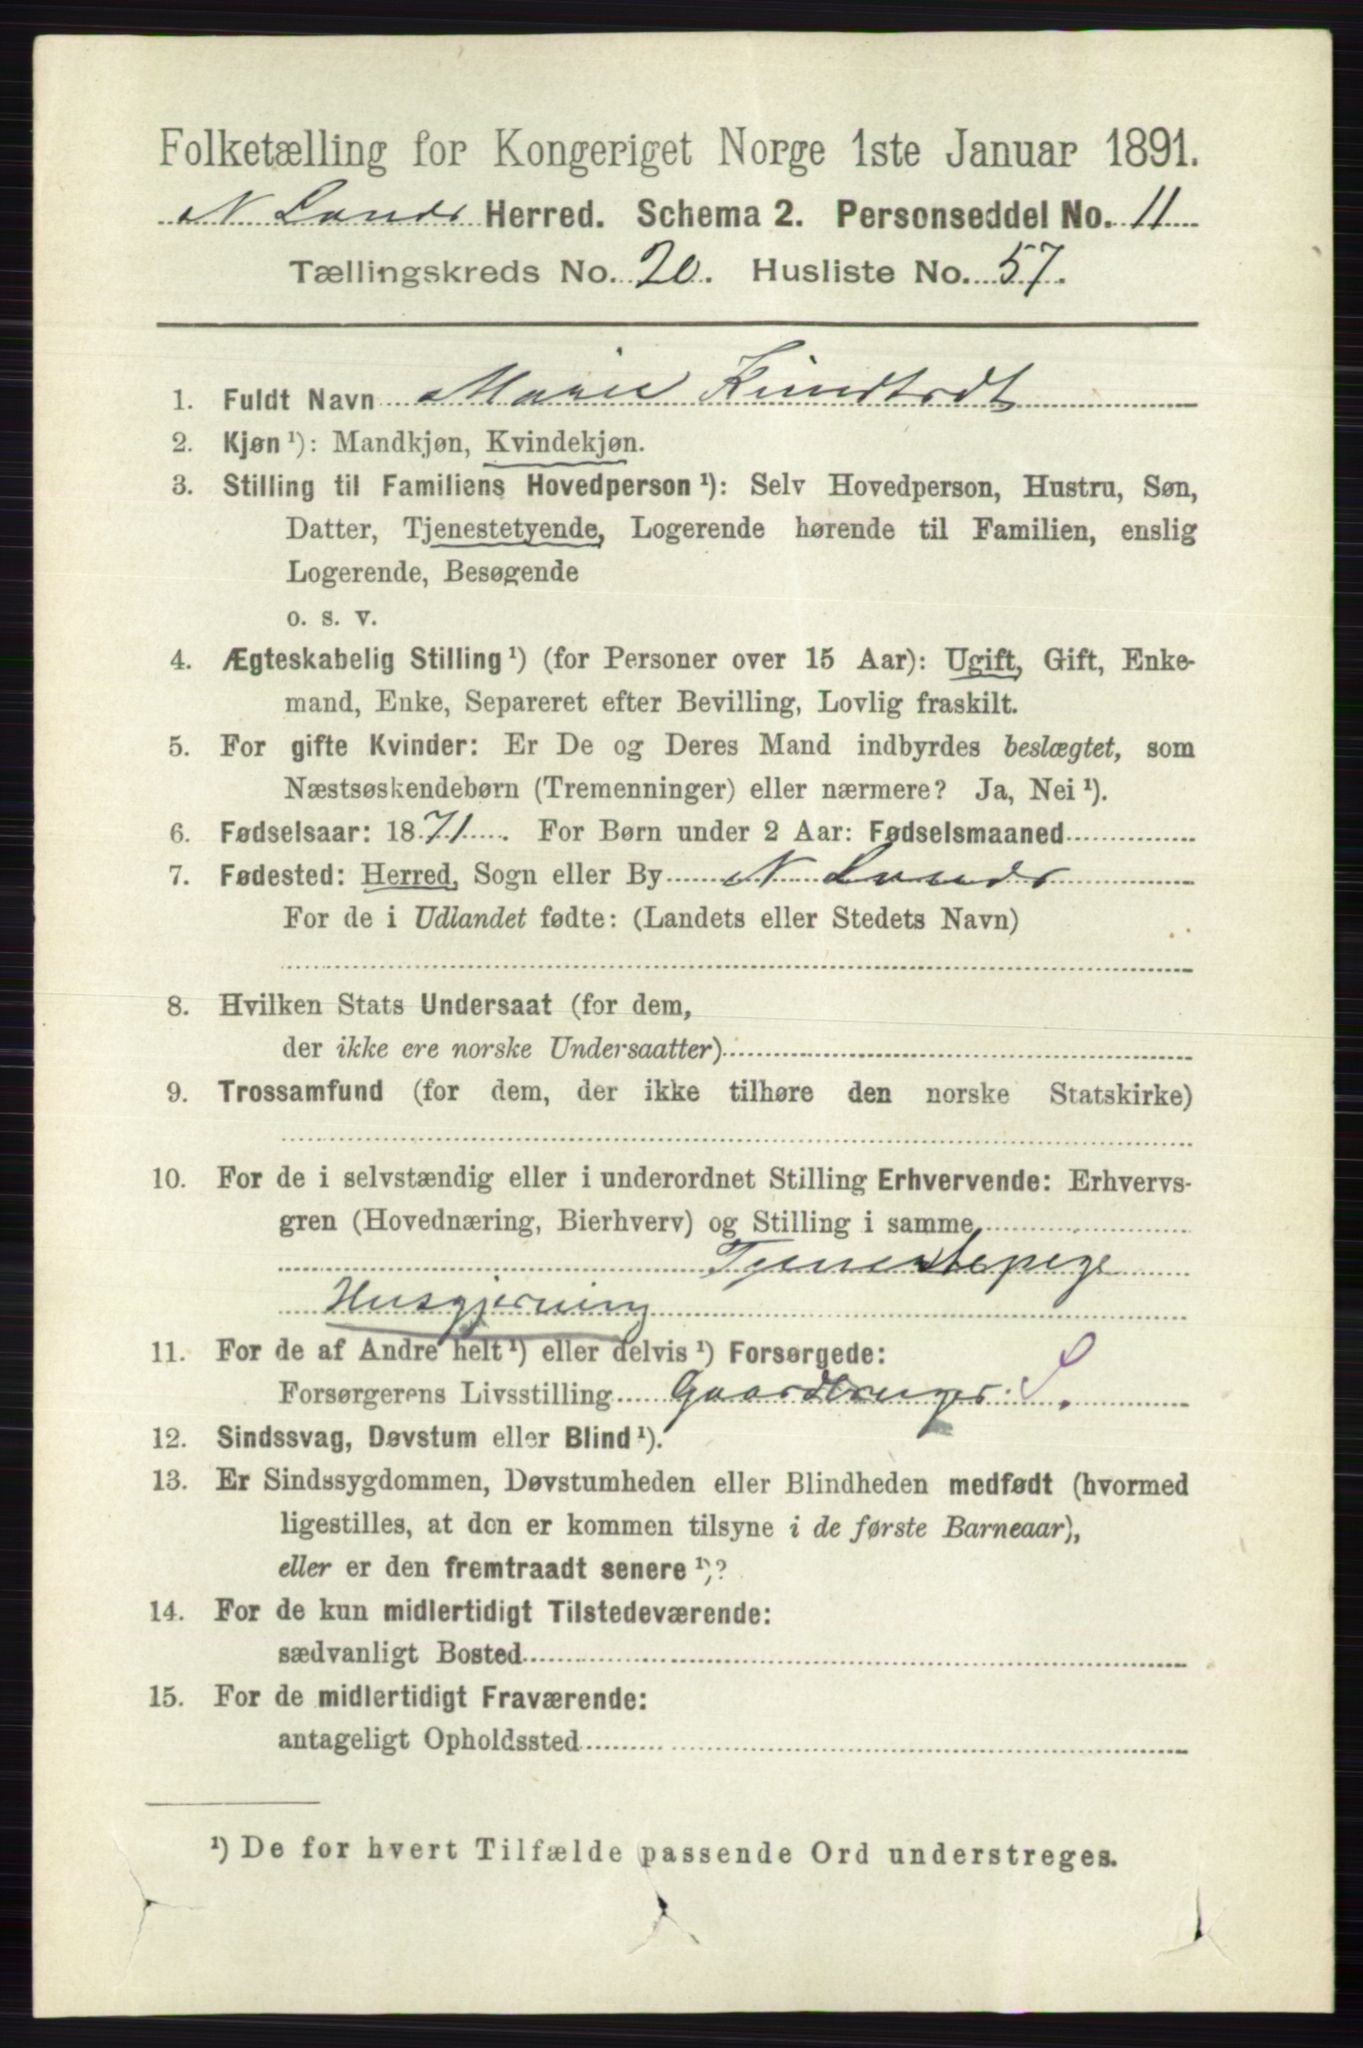 Folketælling for Kongeriget Norge 1ste Januar 1891.
N Lands Herred. Schema 2. Personseddel No. 11
Tællingskreds No. 20. Husliste No. 57.
1. Fuldt Navn Marie
2. Kjøn ¹): Mandkjøn, Kvindekjøn.
3. Stilling til Familiens Hovedperson ¹): Selv Hovedperson, Hustru, Søn,
Datter, Tjenestetyende, Logerende hørende til Familien, enslig
Logerende, Besøgende
o. s. v.
4. Ægteskabelig Stilling ¹) (for Personer over 15 Aar): Ugift, Gift, Enke-
mand, Enke, Separeret efter Bevilling, Lovlig fraskilt.
5. For gifte Kvinder: Er De og Deres Mand indbyrdes beslægtet, som
Næstsøskendebørn (Tremenninger) eller nærmere? Ja, Nei ¹).
6. Fødselsaar: 1871. For Børn under 2 Aar: Fødselsmaaned
7. Fødested: Herred, Sogn eller By N Lands
For de i Udlandet fødte: (Landets eller Stedets Navn)
8. Hvilken Stats Undersaat (for dem,
der ikke ere norske Undersaatter)
9. Trossamfund (for dem, der ikke tilhøre den norske Statskirke)
10. For de i selvstændig eller i underordnet Stilling Erhvervende: Erhvervs-
gren (Hovednæring, Bierhverv) og Stilling i samme
Tjenestepige
Husgjerning
11. For de af Andre helt ¹) eller delvis ¹) Forsørgede:
Forsørgerens Livsstilling Gaardbruger. S.
12. Sindssvag, Døvstum eller Blind ¹).
13. Er Sindssygdommen, Døvstumheden eller Blindheden medfødt (hvormed
ligestilles, at den er kommen tilsyne i de første Barneaar),
eller er den fremtraadt senere ¹)?
14. For de kun midlertidigt Tilstedeværende:
sædvanligt Bosted
15. For de midlertidigt Fraværende:
antageligt Opholdssted
¹) De for hvert Tilfælde passende Ord understreges.